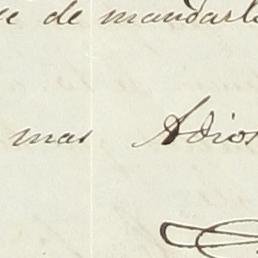 de mandarl
mas Adios